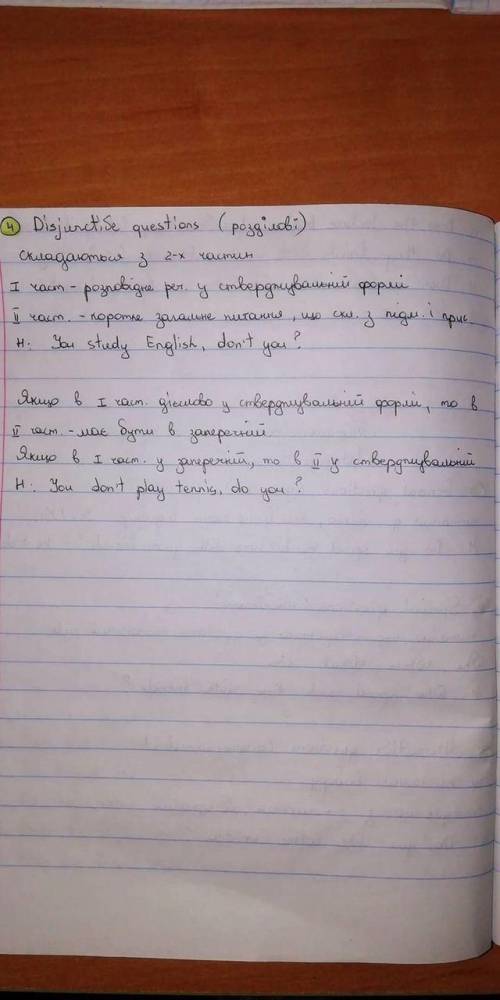 4 Disjunctive questions (розділові)
складаються з 2-х частин
I част - розповідне реч. у стверджувальній формі
II част. - коротке загальне питання, що скл. з підм. і прис.
Н: You study English, don't you?
Якщо в I част. дієслово у стверджувальній формі, то в
II част. - має бути в заперечній
Якщо в I част. у заперечній, то в II у стверджувальній
Н: You don't play tennis, do you?